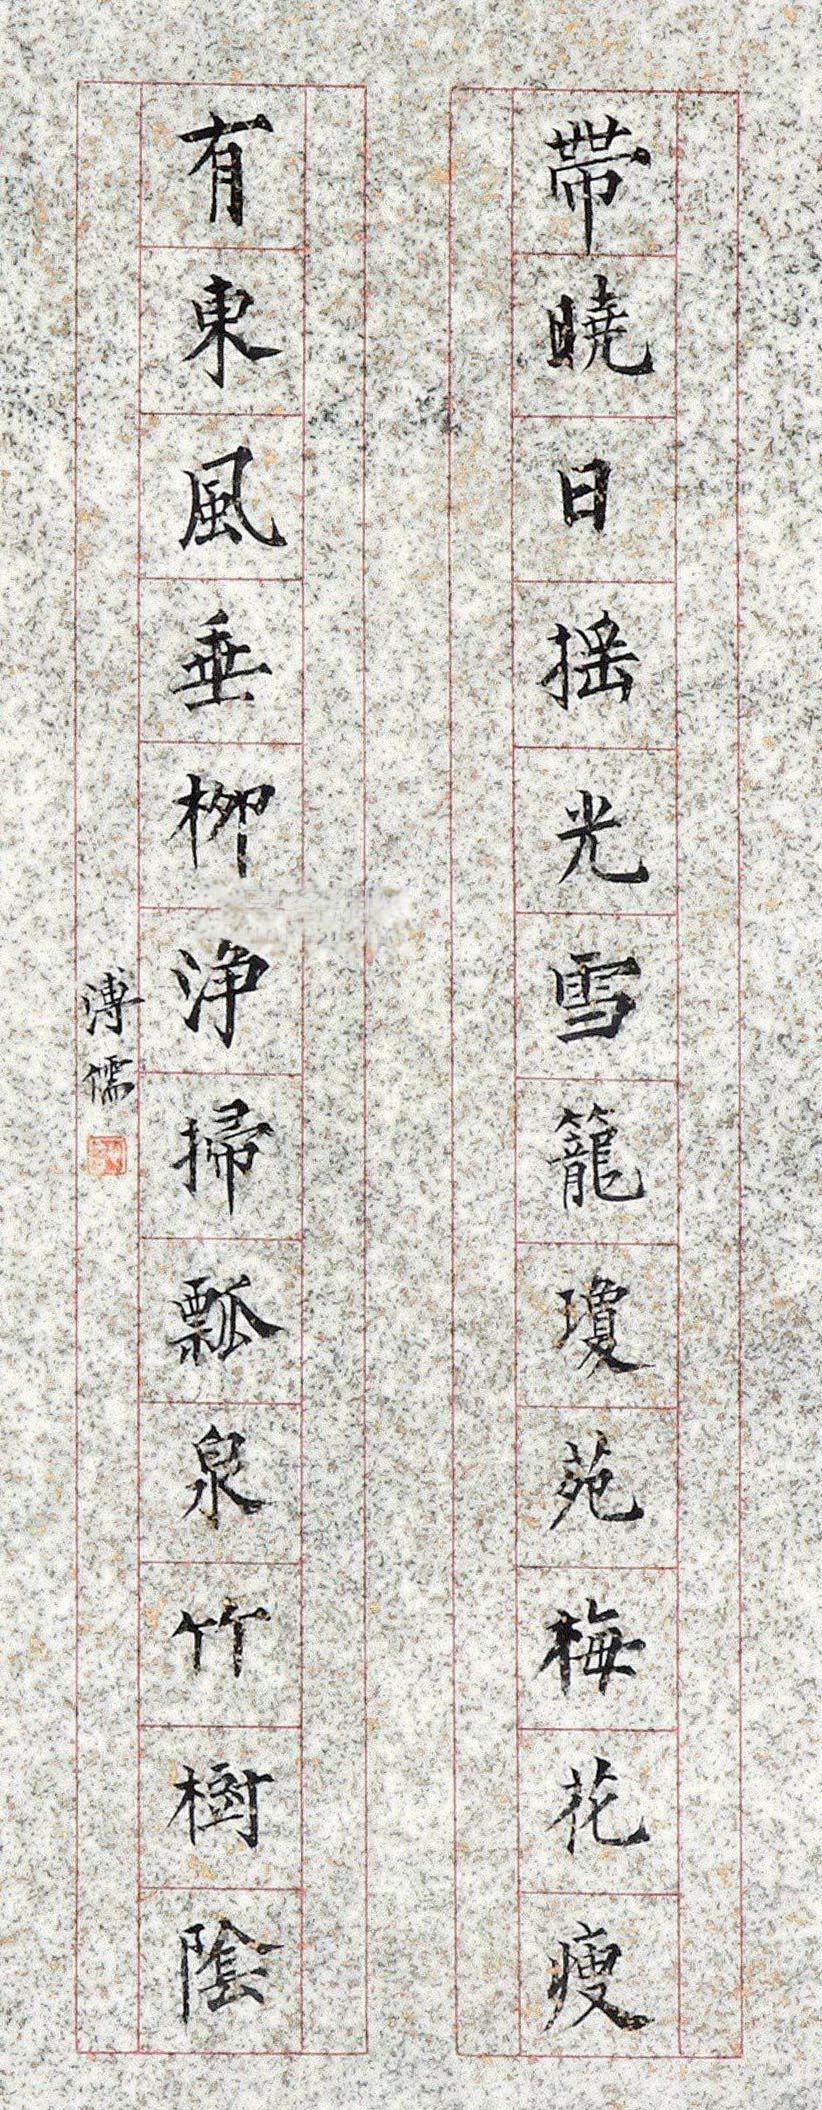 帶曉日搖光雪籠瓊苑梅花瘦
有東風垂柳浄掃瓢泉竹樹陰
溥儒